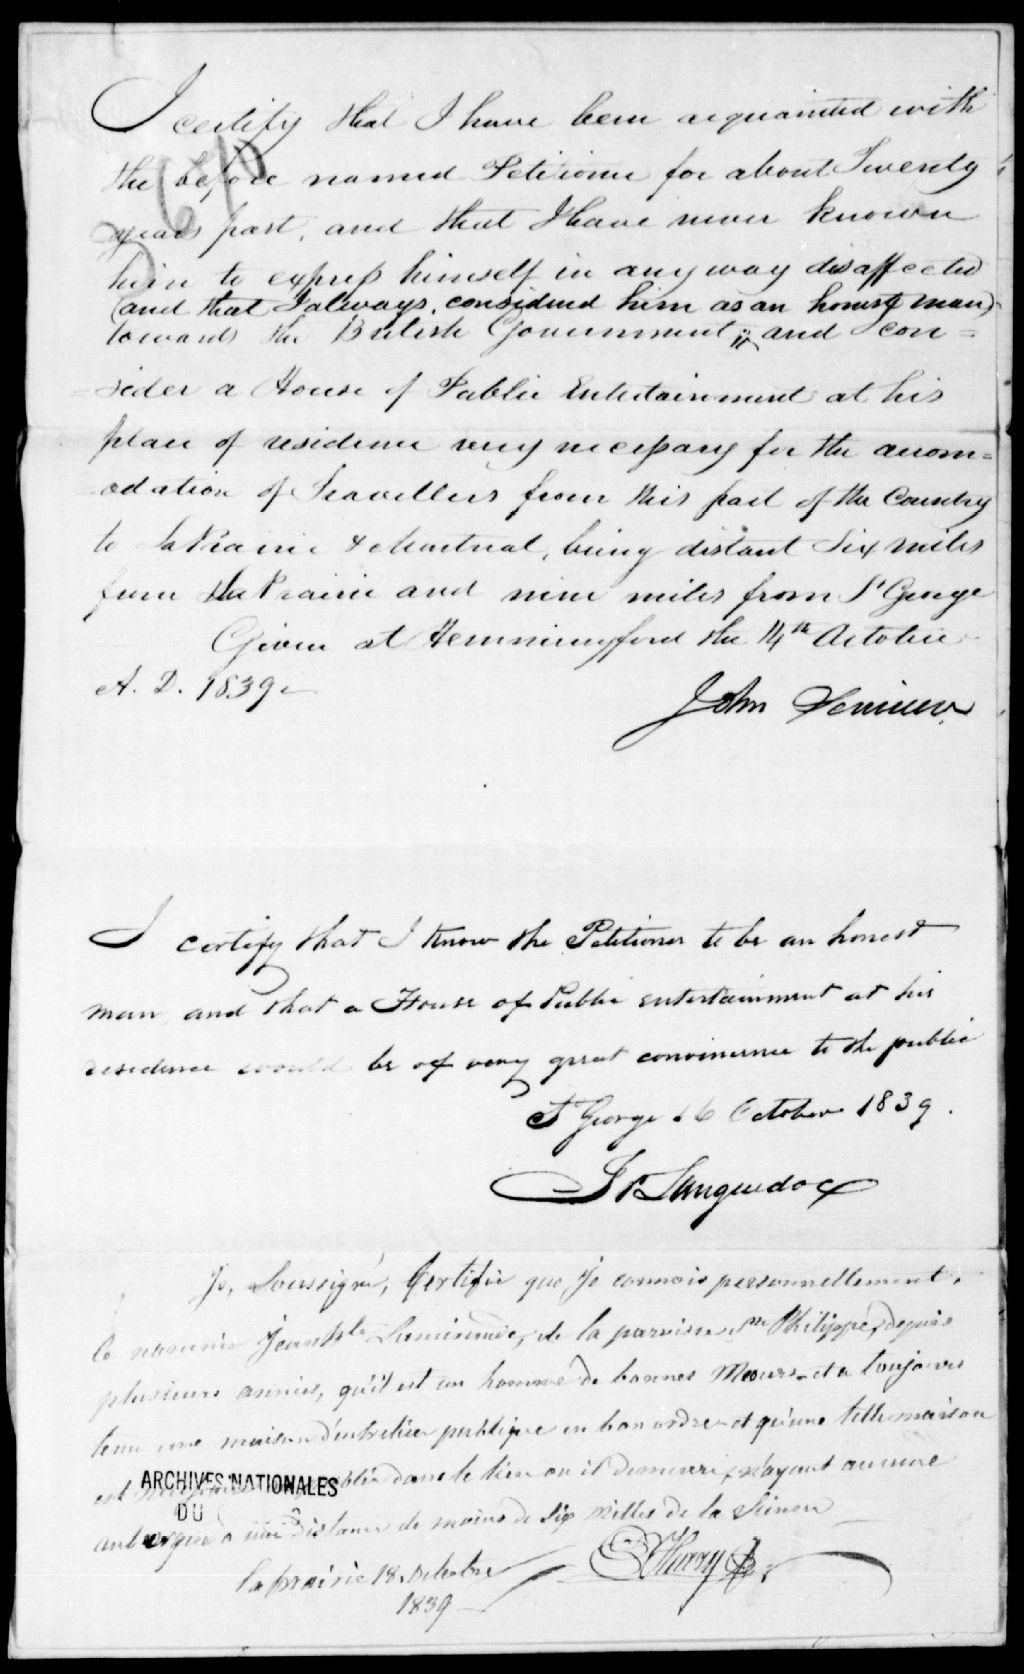 I certify that I have been acquainted with
the before named Petitioner for about Twenty
years past, and that I have never known
him to express himself in any way disaffected
(and that I always considered him as an honest man)
towards the British Government, and con=
=sider a House of Public Entertainment at his
place of residence very necessary for the accom=
odation of Travellers from this part of the Country
to LaPrairie & Montreal, being distant Six miles
from LaPrairie and nine miles from St George
Given at Hemmingford the 14th October
A. D. 1839
John
I certify that I know the Petitioner to be an honest
man and that a House of Public entertainment at his
residence would be of very great convinience to the public
St George 16 October 1839.
Languedoc
Je, Soussigné, Certifie que je connois personnellement,
le nommé Jean Bte de la paroisse St Philippe, depuis
plusieurs années, qu'il est un homme de bonnes Moeurs et a toujours
tenu une maison d'entretien publique en bon ordre et qu'une telle maison
est dans le lieu ou il demeure, n'ayant aucune
auberge à une distance de moins de Six Milles de la Sienne
Laprairie 18 Octobre
1839
ARCHIVES NATIONALES
DU